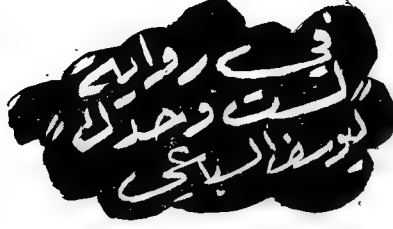 في رواية
"لست وحدك"
ليوسف السباعي